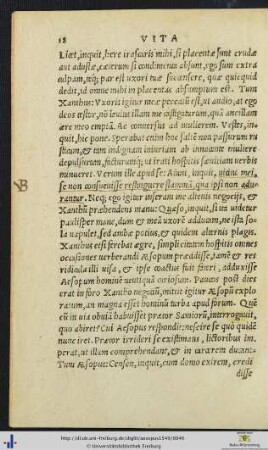 18 VITA
Licet, inquit, here irascaris mihi, si placentæ sunt crudæ
aut adustæ, cæterum si condimenta absunt, ego sum extra
culpam, neq; par est uxori tuæ succensere, quæ quicquid
dedit, id omne mihi in placentas absumptum est. Tum
Xanthus: Vxoris igitur meæ peccatū est, ut audio, at ego
deos testor, nō leuius illam me castigaturum, quā ancillam
ære meo emptā. Ac conuersus ad mulierem. Vestes, inquit,
hic pone. Sperabat enim hoc saltē non passurum rusticum,
& tam indignam iniuriam ab innocente muliere
depulsurum, facturumq; ut irati hospitis sæuitiam uerbis
minueret. Verum ille apud se: Aiunt, inquit, uidui mei,
se non consueuisse restinguere flammā, qua ipsi non adurantur.
Neq; ego igitur inseram me alienis negocijs, &
Xanthū præhendens manu: Quæso, inquit, si ita uidetur
paulisper mane, dum & meā uxorē adducam, ne ista sola
uapulet, sed ambæ potius, & quidem alternis plagis.
Xanthus etsi ferebat ægre, simplicitatem hospitis omnes
occasiones uerberandi Aesopum præcidisse, tamē & res
ridicula illi uisa, & ipse coactus fuit fateri, adduxisse
Aesopum hominē neutiquā curiosum. Paucis post diebus
erat in foro Xantho negociū, mittit igitur Aesopū exploratum,
an magna esset hominū turba apud forum. Qui
cū in uia obuiā habuisset prætor Samiorū, interrogauit,
quo abiret? Cui Aesopus respondit: nescire se quò quidē
nunc iret. Prætor irrideri se existimans, lictoribus imperat,
ut illum comprehendant, & in carcerem ducant.
Tum Aesopus: Censen, inquit, cum domo exirem, credi
disse
B
http://dl.ub.uni-freiburg.de/diglit/aesopus1549/0046
© Universitätsbibliothek Freiburg
Baden-Württemberg